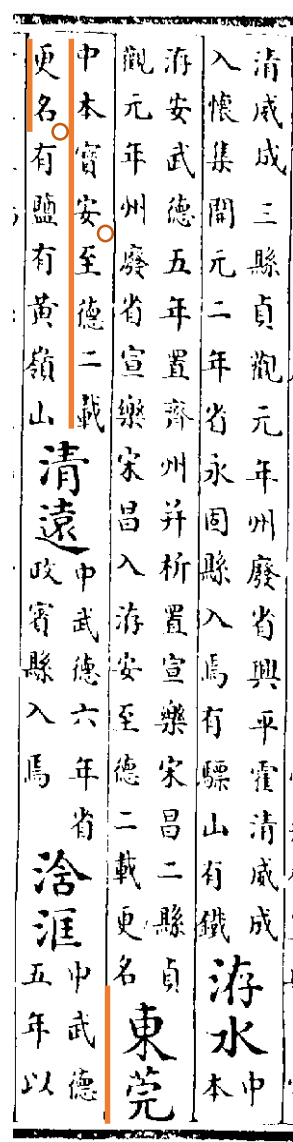 清威成三縣貞觀元年州廢省興平霍清威成
入懷集開元二年省永固縣入焉有驃山有鐵
洊水
中
本
洊安武德五年置齊州并析置宣樂宋昌二縣貞
觀元年州廢省宣樂宋昌入洊安至德二載更名
東莞
中本寳安至德二載
更名有鹽有黃嶺山
清遠
中武德六年省
政賓縣入焉
浛洭
中武德
五年以